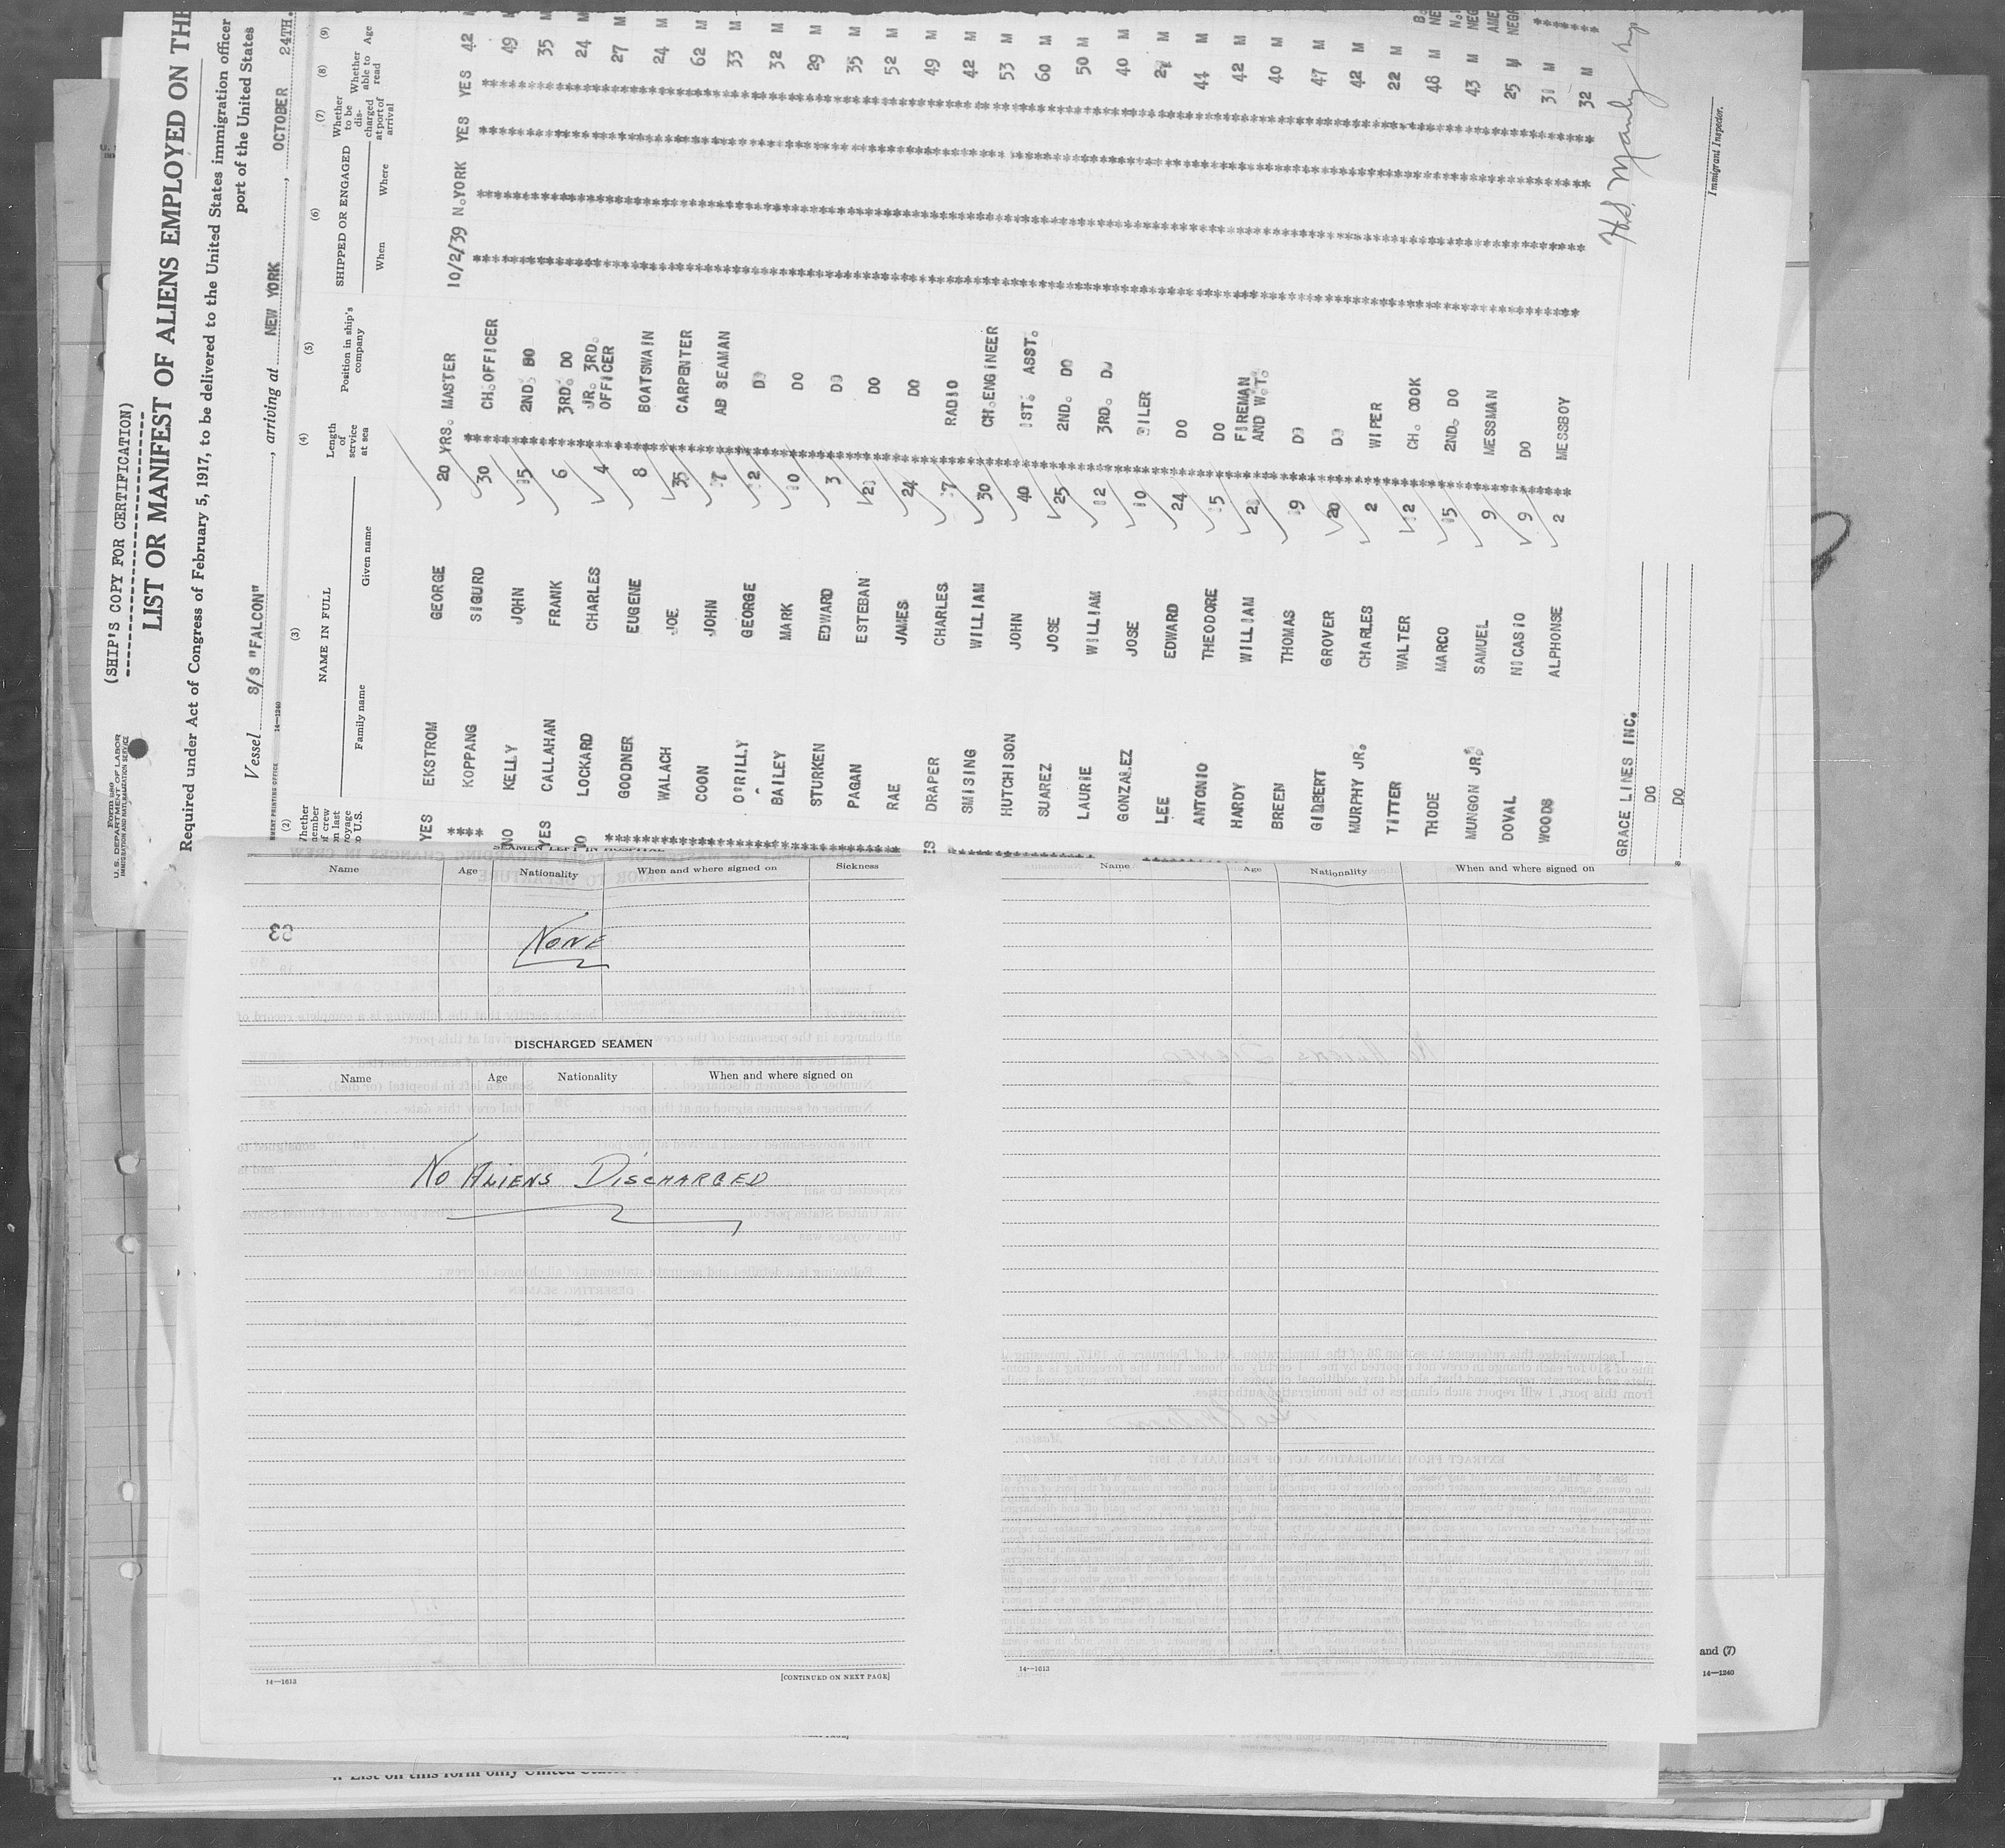 (SHIP'S COPY FOR CERTIFICATION)
Form 680
U. S. DEPARTMENT OF LABOR
IMMIGRATION AND NATURALIZATION SERVICE
LIST OR MANIFEST OF ALIENS EMPLOYED ON TH
Required under Act of Congress of February 5, 1917, to be delivered to the United States immigration officer
port of the United States
Vessel S/S "FALCON", arriving at NEW YORK, OCTOBER 24TH.
14—1240
(2) (3) (4) (5) (6) (7) (8) (9)
NAME IN FULL
Family name Given name
Length of service at sea
Position in ship's company
SHIPPED OR ENGAGED
When Where
Whether to be discharged at port of arrival
Whether able to read
Age
YES EKSTROM GEORGE 20 YRS. MASTER 10/2/39 N.YORK YES YES 42
**** KOPPANG SIGURD 30 CH.OFFICER 49 M
NO KELLY JOHN 15 2ND. DO 35 M
YES CALLAHAN FRANK 6 3RD. DO 24 M
NO LOCKARD CHARLES 4 JR. 3RD. OFFICER 27 M
GOODNER EUGENE 8 BOATSWAIN 24 M
WALACH JOE 35 CARPENTER 62 M
COON JOHN 17 AB SEAMAN 33 M
O'RILLY GEORGE 12 DO 32 M
BAILEY MARK 10 DO 29 M
STURKEN EDWARD 3 DO 35 M
PAGAN ESTEBAN 21 DO 52 M
RAE JAMES 24 DO 49 M
DRAPER CHARLES 17 RADIO 42 M
SMISING WILLIAM 30 CH.ENGINEER 53 M
HUTCHISON JOHN 40 1ST. ASST. 60 M
SUAREZ JOSE 25 2ND. DO 50 M
LAURIE WILLIAM 12 3RD. DO 40 M
GONZALEZ JOSE 10 OILER 27 M
LEE EDWARD 24 DO 44 M
ANTONIO THEODORE 15 DO 42 M
HARDY WILLIAM FIREMAN AND W.T. 40 M
BREEN THOMAS 19 DO 47 M
GILBERT GROVER 20 DO 42 M
MURPHY JR. CHARLES 2 WIPER 22 M
TITTER WALTER 12 CH. COOK 48 M
THODE MARCO 15 2ND. DO 43 M
MUNGON JR. SAMUEL 9 MESSMAN 25 M
DOVAL NICASIO 9 DO 31 M
WOODS ALPHONSE 2 MESSBOY 32 M
GRACE LINES INC.
DO
DO
Immigrant Inspector.
SEAMEN LEFT IN HOSPITAL
Name Age Nationality When and where signed on Sickness
33
NONE
DISCHARGED SEAMEN
Name Age Nationality When and where signed on
NO ALIENS DISCHARGED
[CONTINUED ON NEXT PAGE]
14—1613
Name Age Nationality When and where signed on
14—1613
and (7)
14—1240